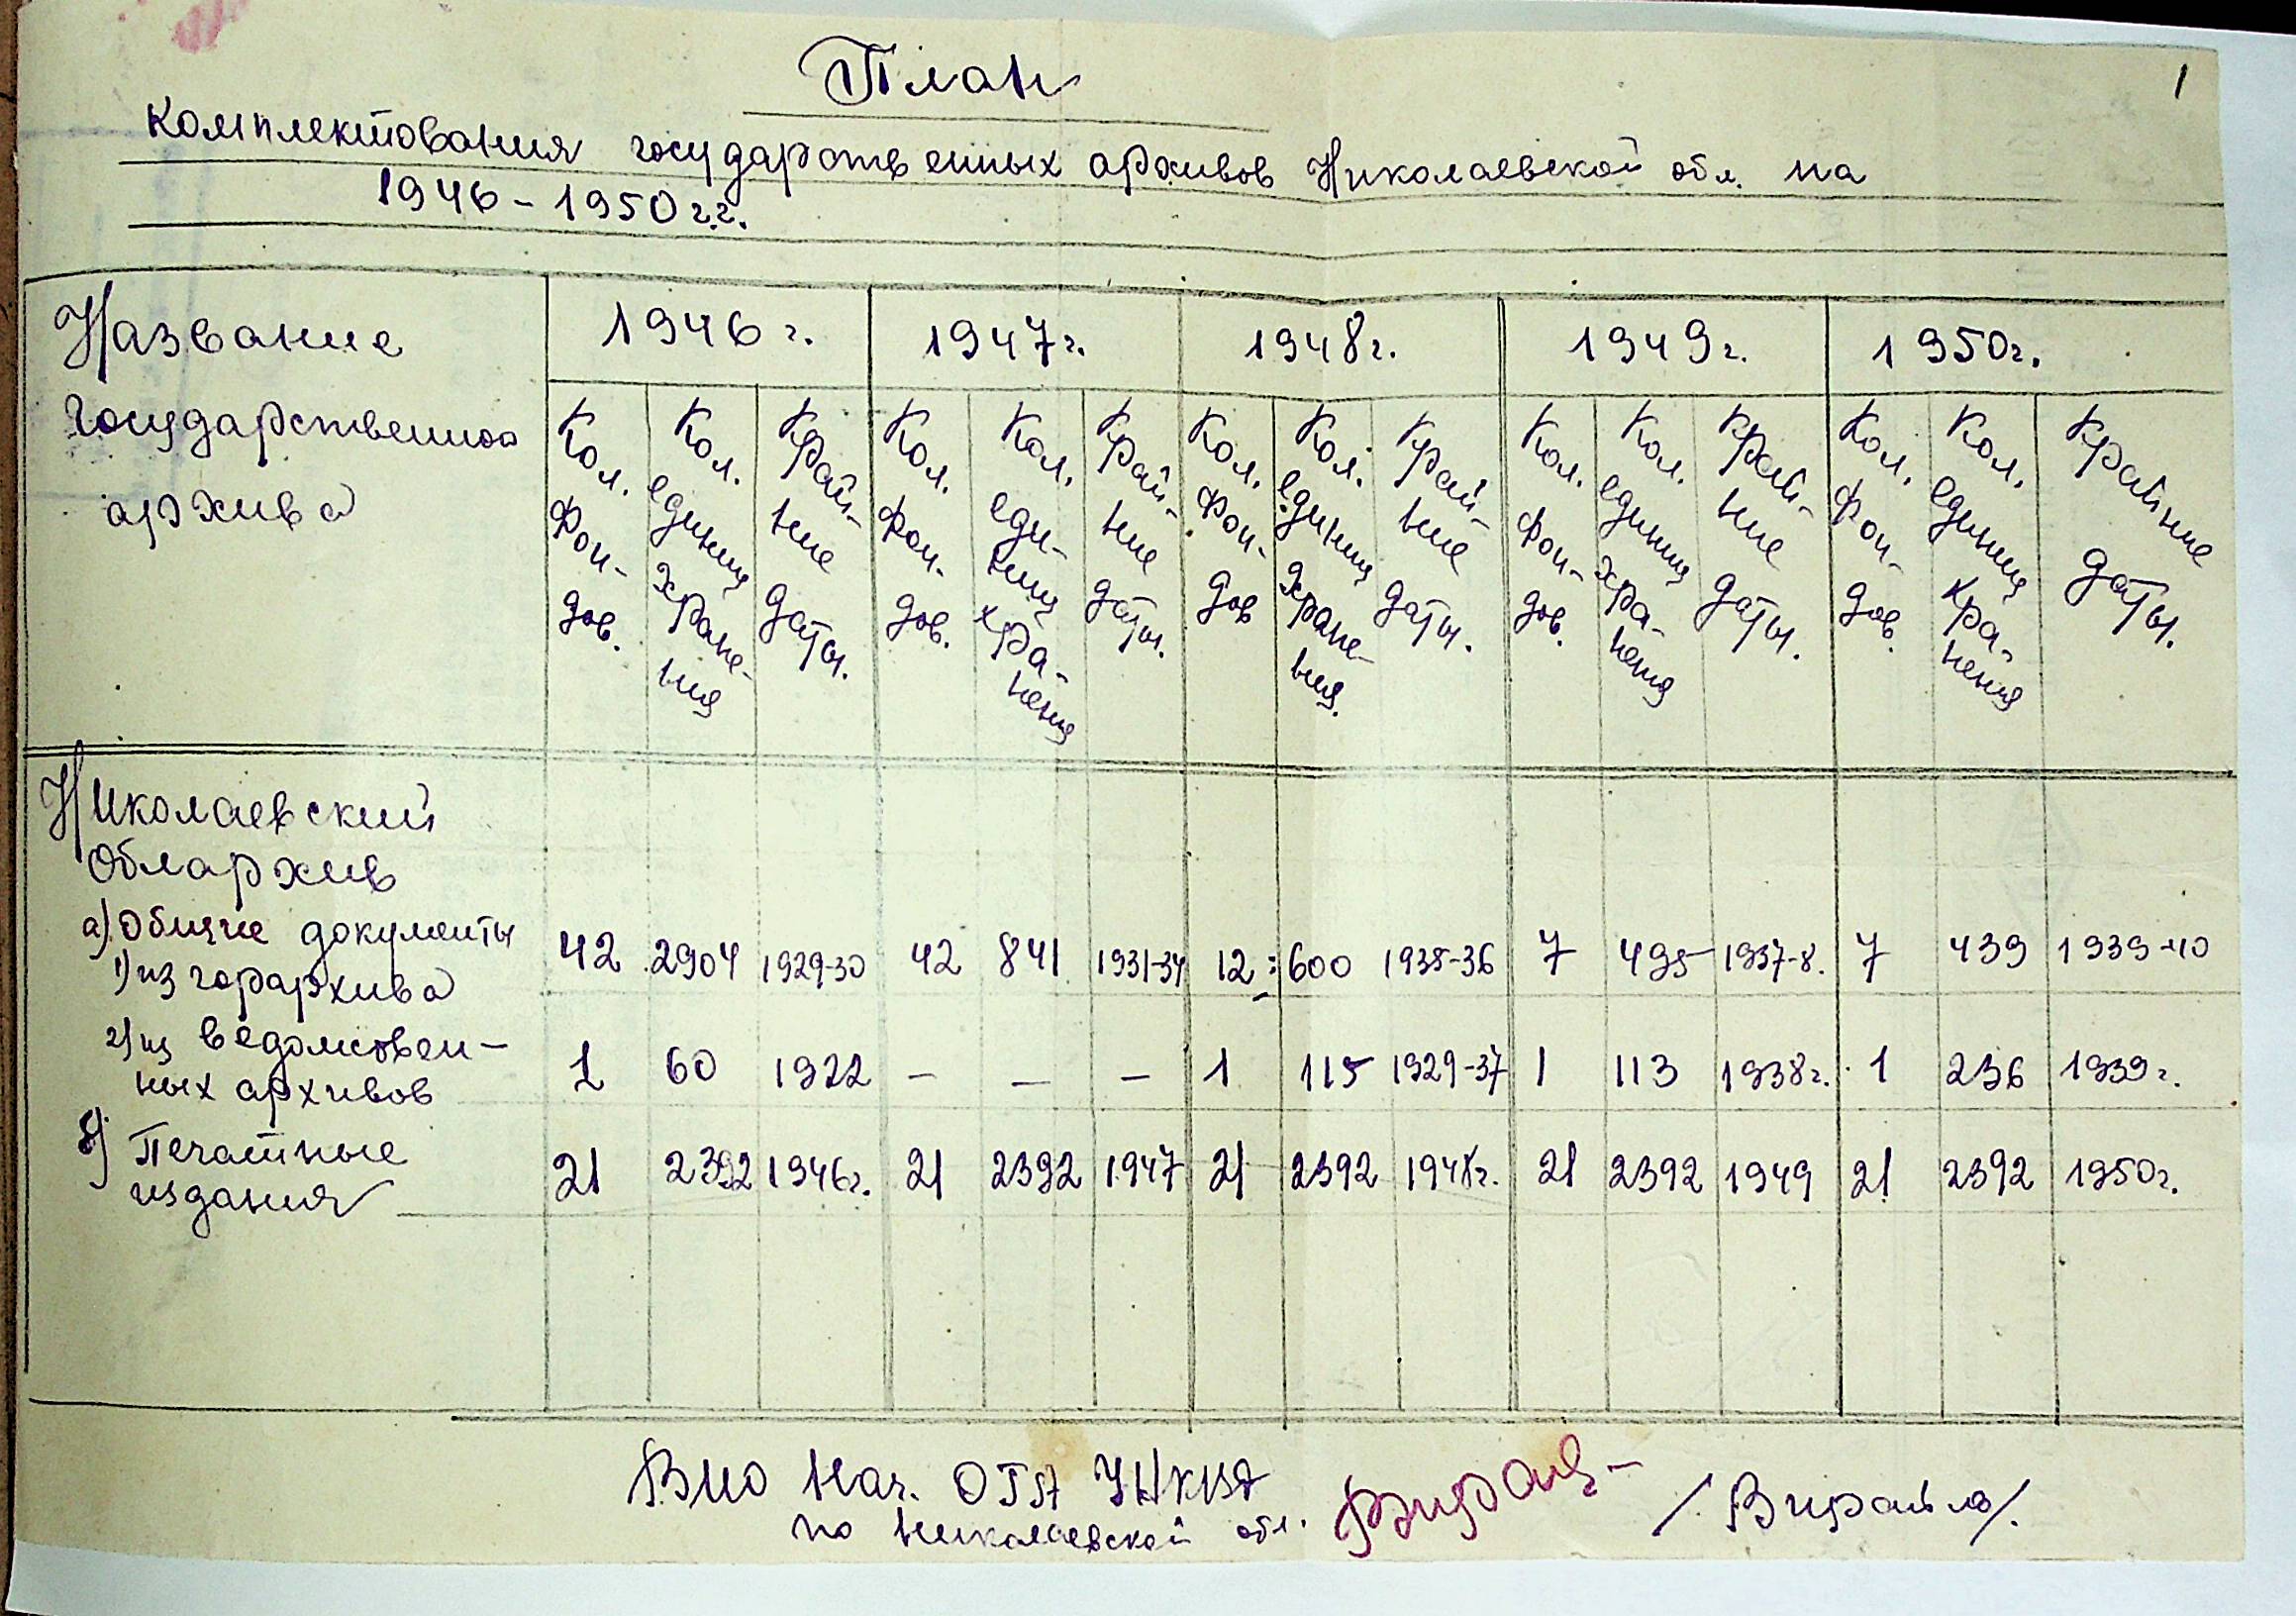 1
План
комплектования государственных архивов Николаевской обл. на
1946-1950 г.г.
Название государственного архива
1946 г. 1947 г. 1948 г. 1949 г. 1950 г.
Кол. фон-дов. Кол. единиц хране-ния Край-ние даты. Кол. фон-дов. Кол. еди-ниц хра-нения Край-ние даты. Кол. фон-дов Кол. единиц хране-ния. Край-ние даты. Кол. фон-дов. Кол. единиц хра-нения Край-ние даты. Кол. фон-дов. Кол. единиц хра-нения Крайние даты.
Николаевский
Облархив
а) Общие документы
1) из горархива 42 2904 1929-30 42 841 1931-34 12 600 1935-36 7 495 1937-8. 7 439 1939-40
2) из ведомствен-
ных архивов 1 60 1922 — — — 1 115 1929-37 1 113 1938 г. 1 236 1939 г.
б) Печатные
издания 21 2392 1946 г. 21 2392 1947 21 2392 1948 г. 21 2392 1949 21 2392 1950 г.
Врио Нач. ОГА УНКВД
по Николаевской обл.